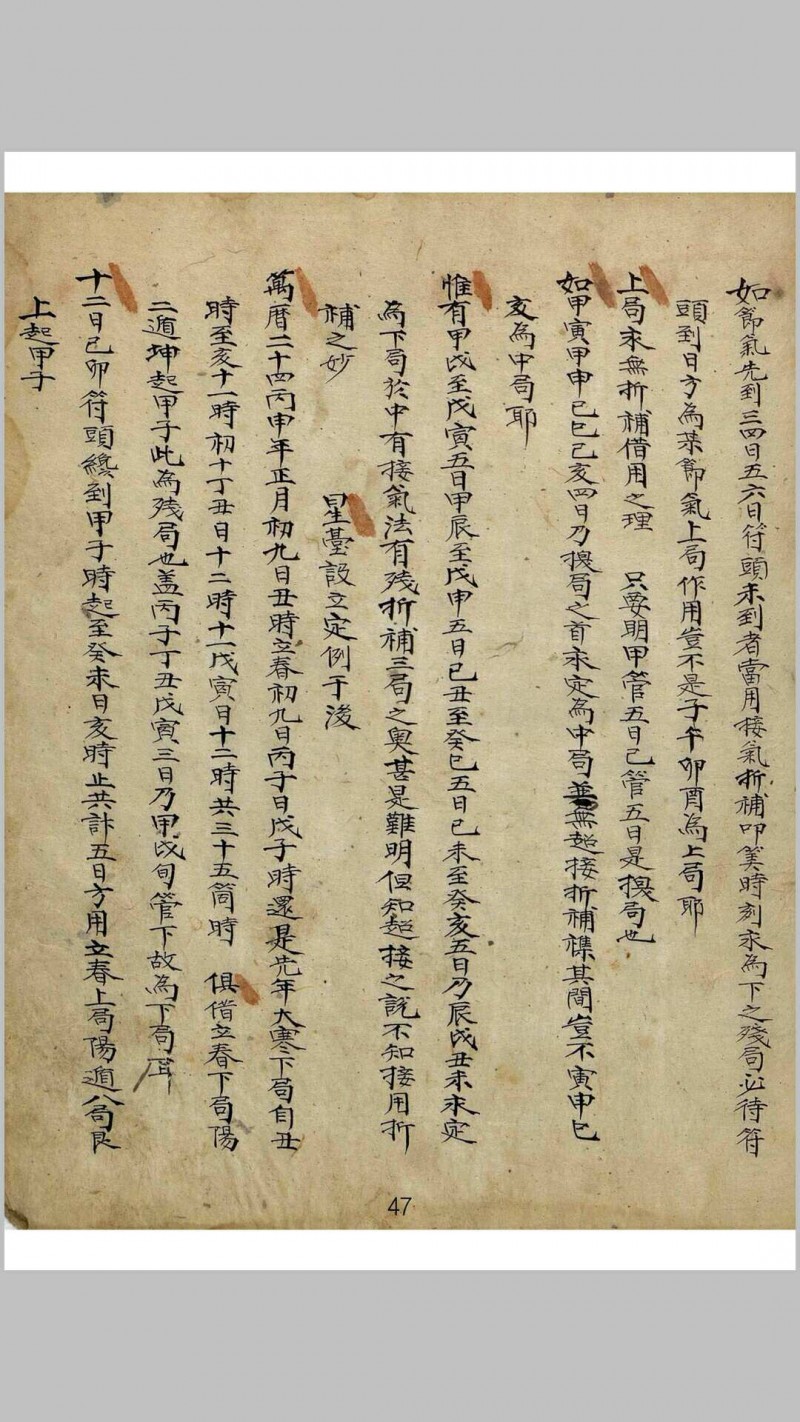 如節氣先到三四日五六日符頭未到者當用接氣折補叩筭時刻求為下之殘局必待符
頭到日方為某節氣上局作用豈不是子午卯酉為上局耶
上局求無折補借用之理 只要明甲管五日己管五日是換局也
如甲寅甲申己巳己亥四日乃換局之首求定為中局無超接折補襍其間豈不寅申巳
亥為中局耶
惟有甲戌至戊寅五日甲辰至戊申五日己丑至癸巳五日己未至癸亥五日乃辰戌丑未求定
為下局於中有接氣法有殘折補三局之奧甚是難明但知超接之說不知接用折
補之妙 星臺設立定例于後
萬曆二十四丙申年正月初九日丑時立春初九日丙子日戊子時還是先年大寒下局自丑
時至亥十一時初十丁丑日十二時十一戊寅日十二時共三十五箇時 俱借立春下局陽
二遁坤起甲子此為殘局也蓋丙子丁丑戊寅三日乃甲戌旬管下故為下局耳
十二日己卯符頭纔到甲子時起至癸未日亥時止共計五日方用立春上局陽遁八局艮
上起甲子
47